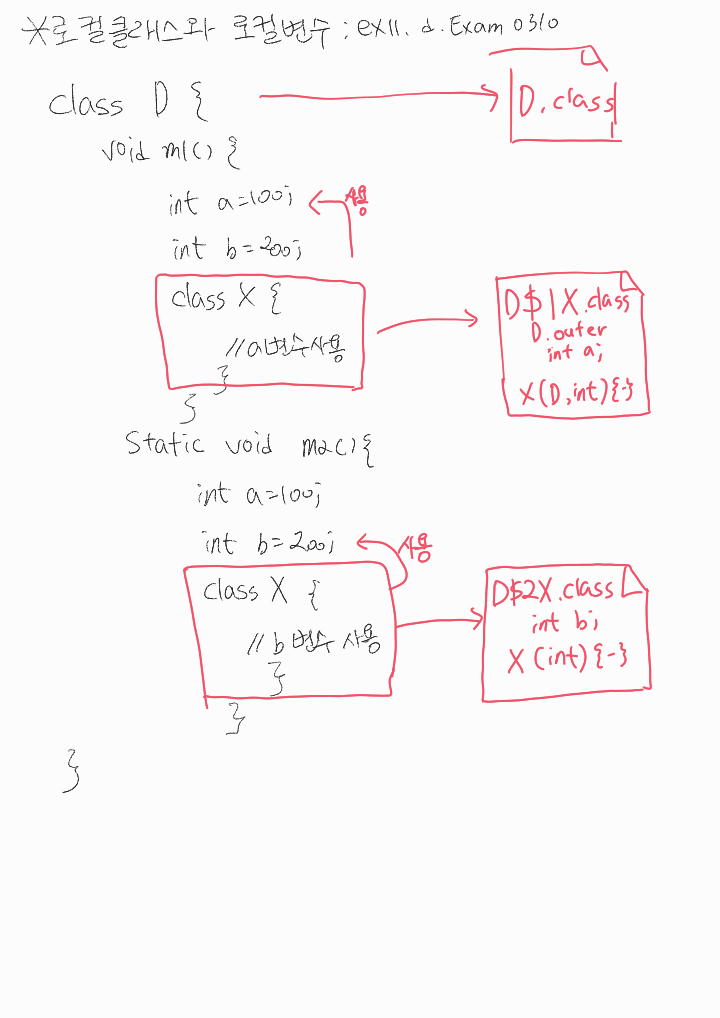 *로컬클래스와 로컬변수 : ex11. d. Exam 0310
class D {
D.class
void m1() {
int a=100;
사용
int b=200;
class X {
//a변수사용
}
}
D$1X.class
D.outer
int a;
X(D,int){-}
Static void m2(){
int a=100;
int b=200;
사용
class X {
//b변수 사용
}
}
D$2X.class
int b;
X(int){-}
}